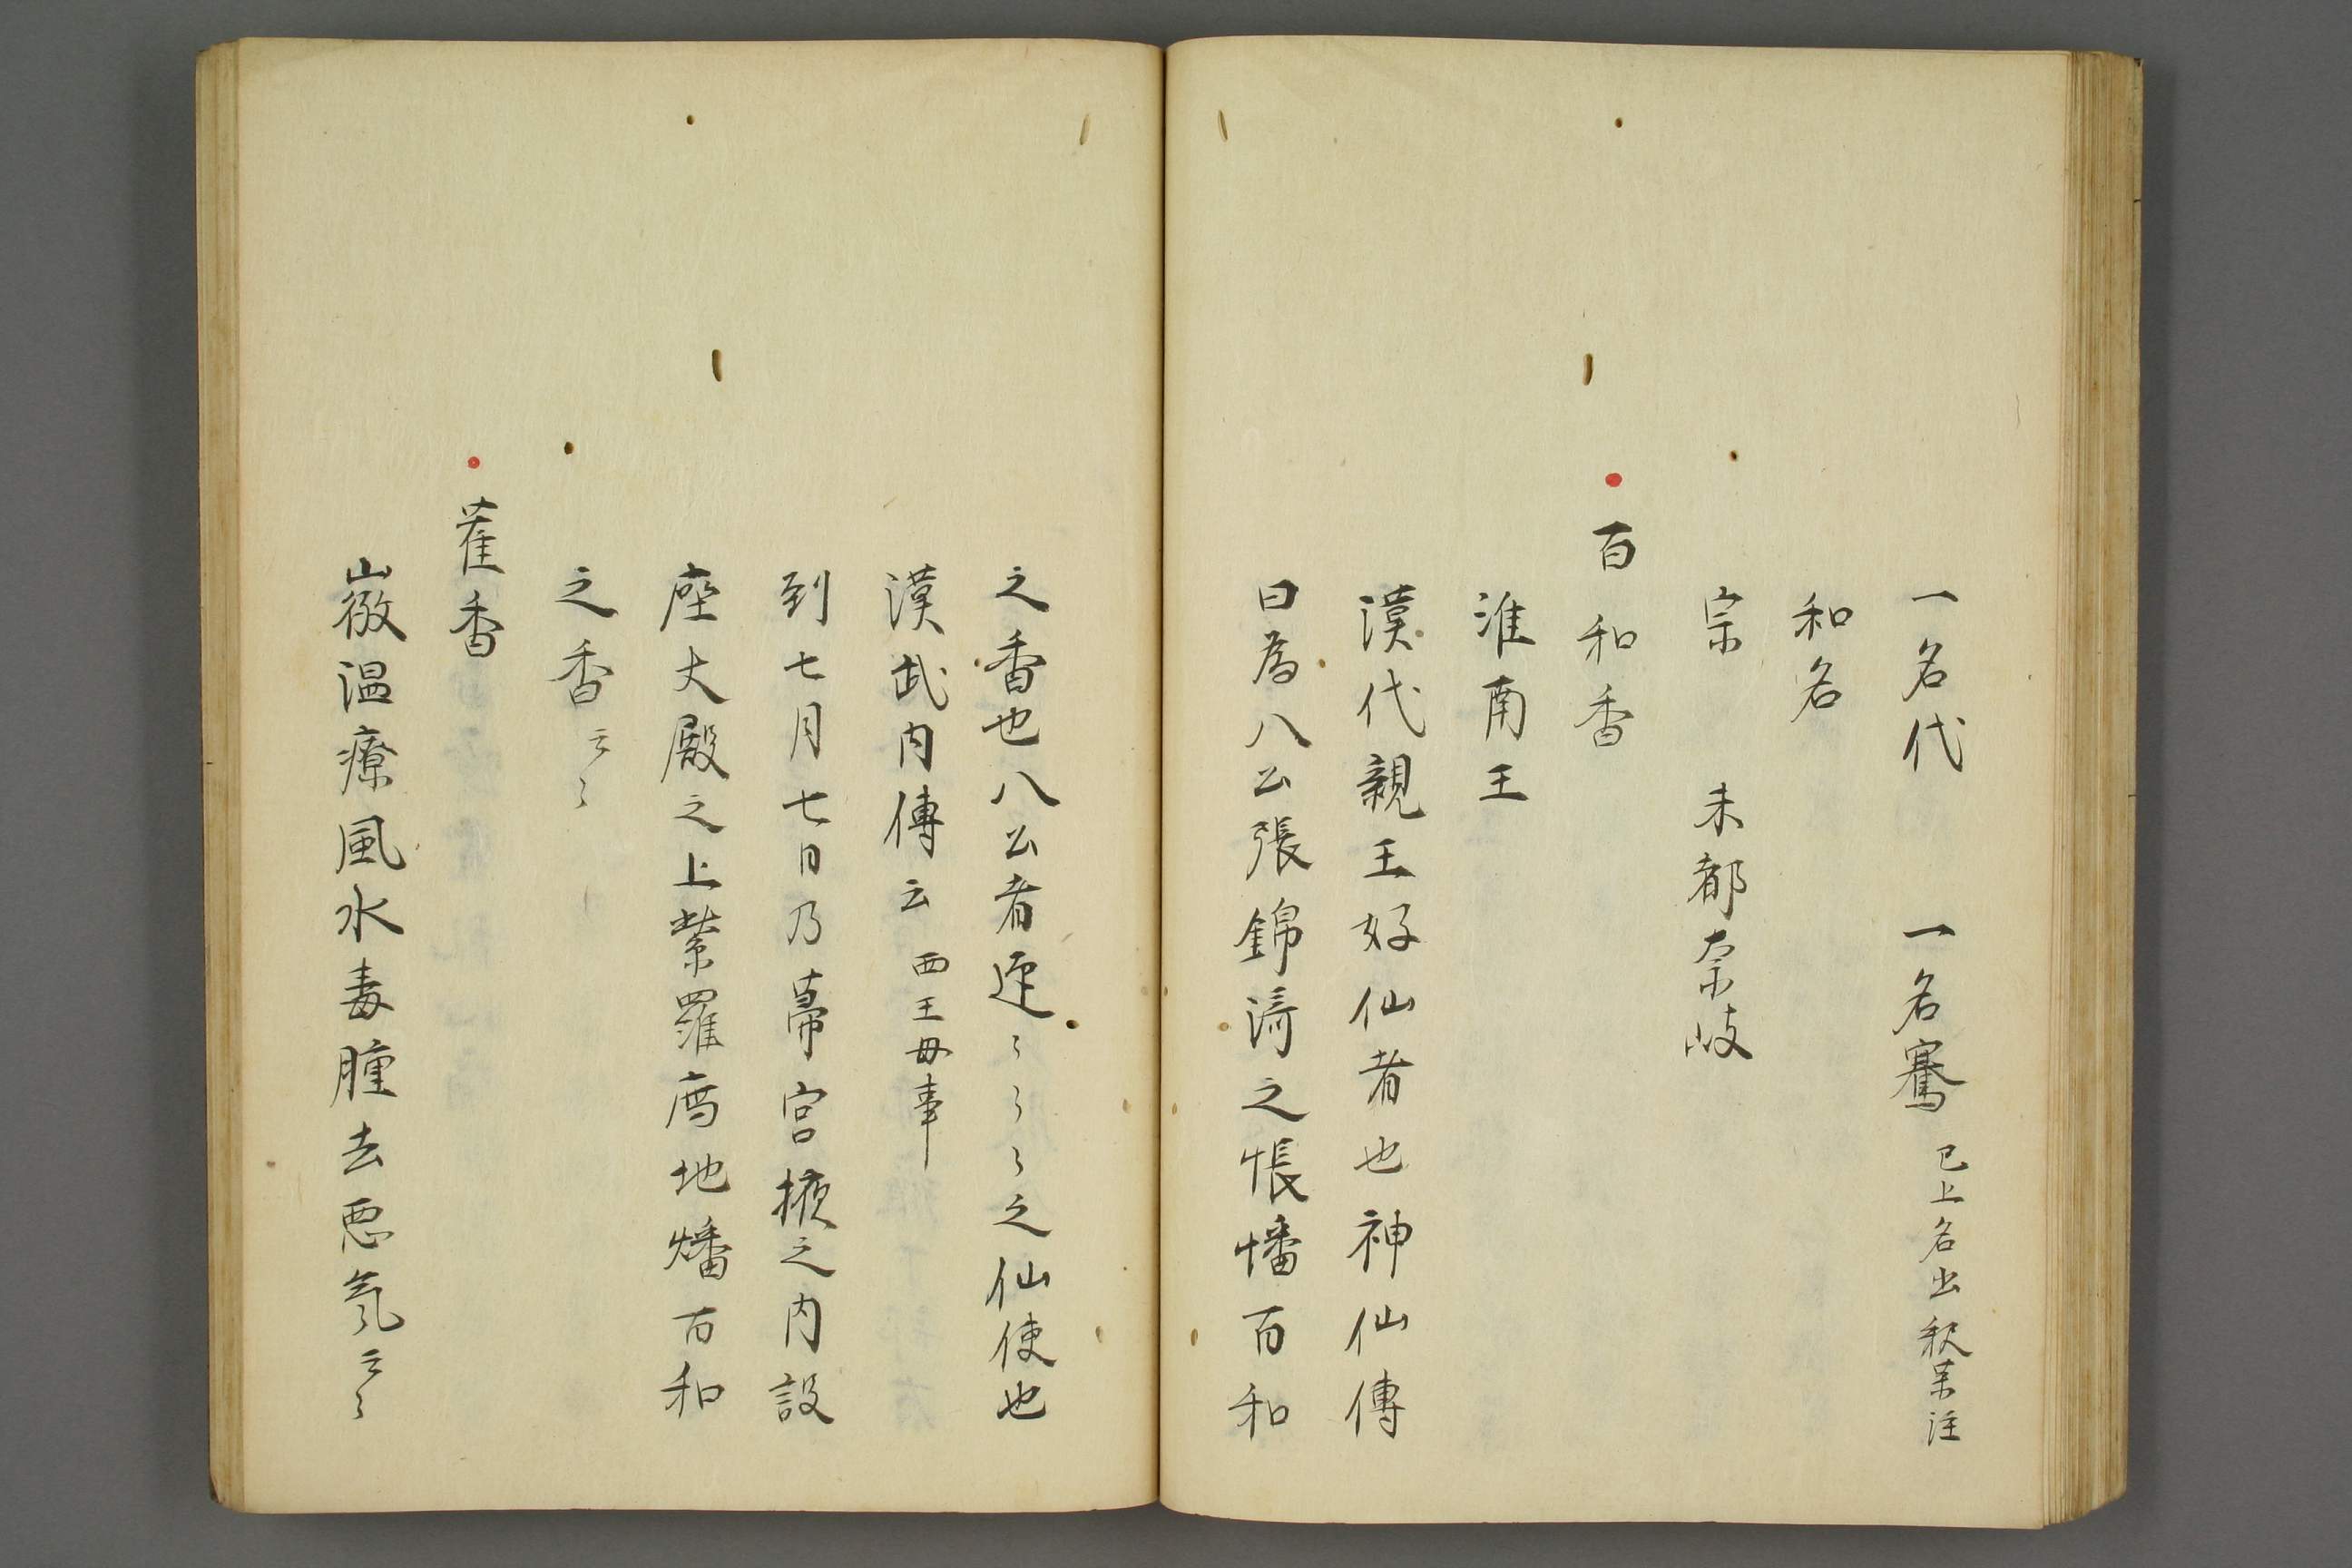 一名代　一名騫 已上名出釈薬注
和名
宗　未都奈岐
百和香
淮南王
漢代親王好仙者也神仙傳
曰為八公張錦漪之帳幡百和
之香也八公者淮〻〻〻之仙使也
漢武内傳云 西王母事
到七月七日乃幕宮掖之内設
座大殿之上紫羅席地燔百和
之香云〻
藿香
山微温療風水毒腫去悪氣云〻